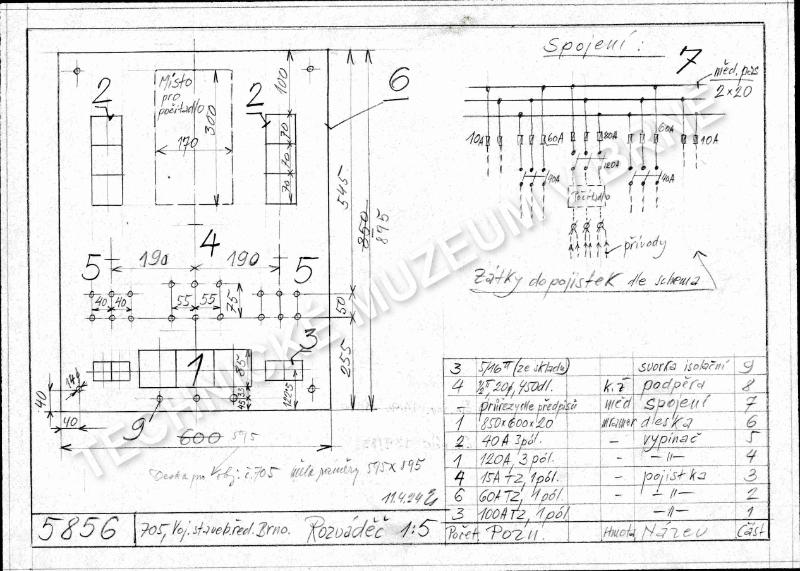 Spojení:
7
měd. pás
2×20
10A
60A
80A
60A
10A
40A
120A
40A
Počítadlo
přívody
Zátky do pojistek dle schema
2
Místo
pro
počítadlo
300
170
2
100
70
70
70
6
545
850
895
190
4
190
5
5
40
40
55
55
75
50
255
1
85
3
40
40
9
45
33
122,5
600
595
Deska pro obj. č. 705 měla průměry 595×895
11.4.24
3 5/16" (ze skladu) svorka isolační 9
4 20φ, 450dl. k.ž podpěra 8
– průřezy dle předpisů měď spojení 7
1 850×600×20 mramor deska 6
2 40A 3pól. – vypínač 5
1 120A, 3 pól. – –"– 4
4 15A TZ, 1 pól. – pojistka 3
6 60A TZ, 1 pól. – –"– 2
3 100A TZ, 1 pól –"– 1
Počet. Pozn. Hmota Název Část
5856
705, Voj. staveb. řed. Brno. Rozváděč 1:5
TECHNICKÉ MUZEUM V BRNĚ